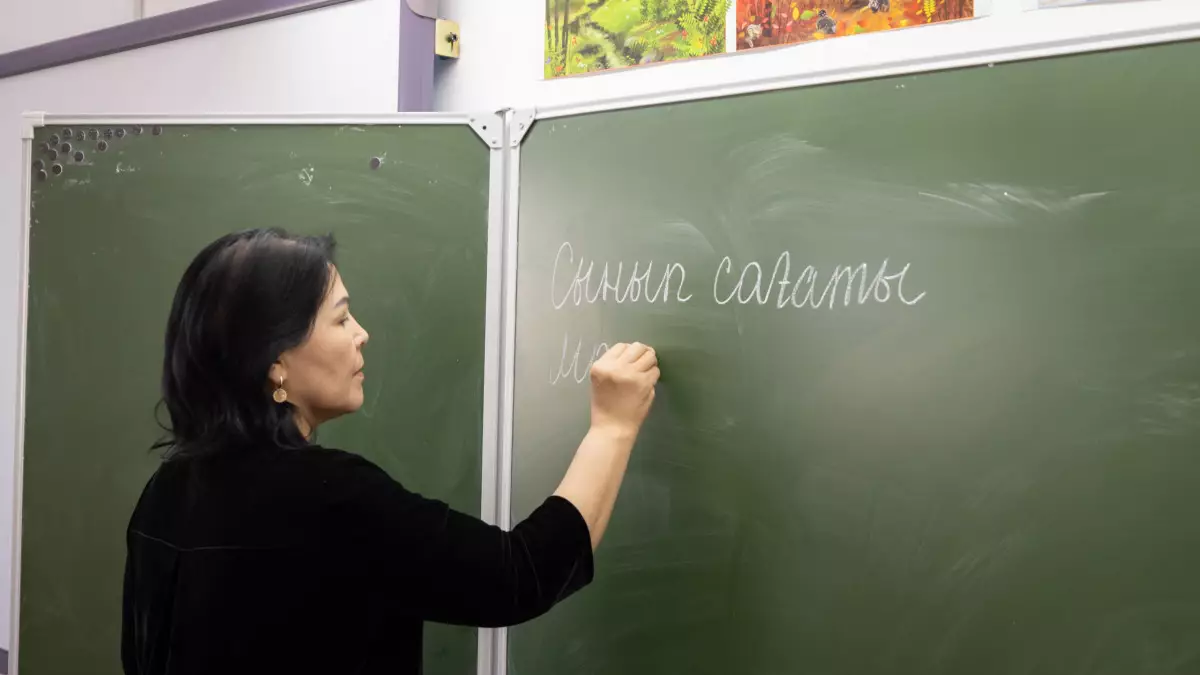 Сынып сағаты